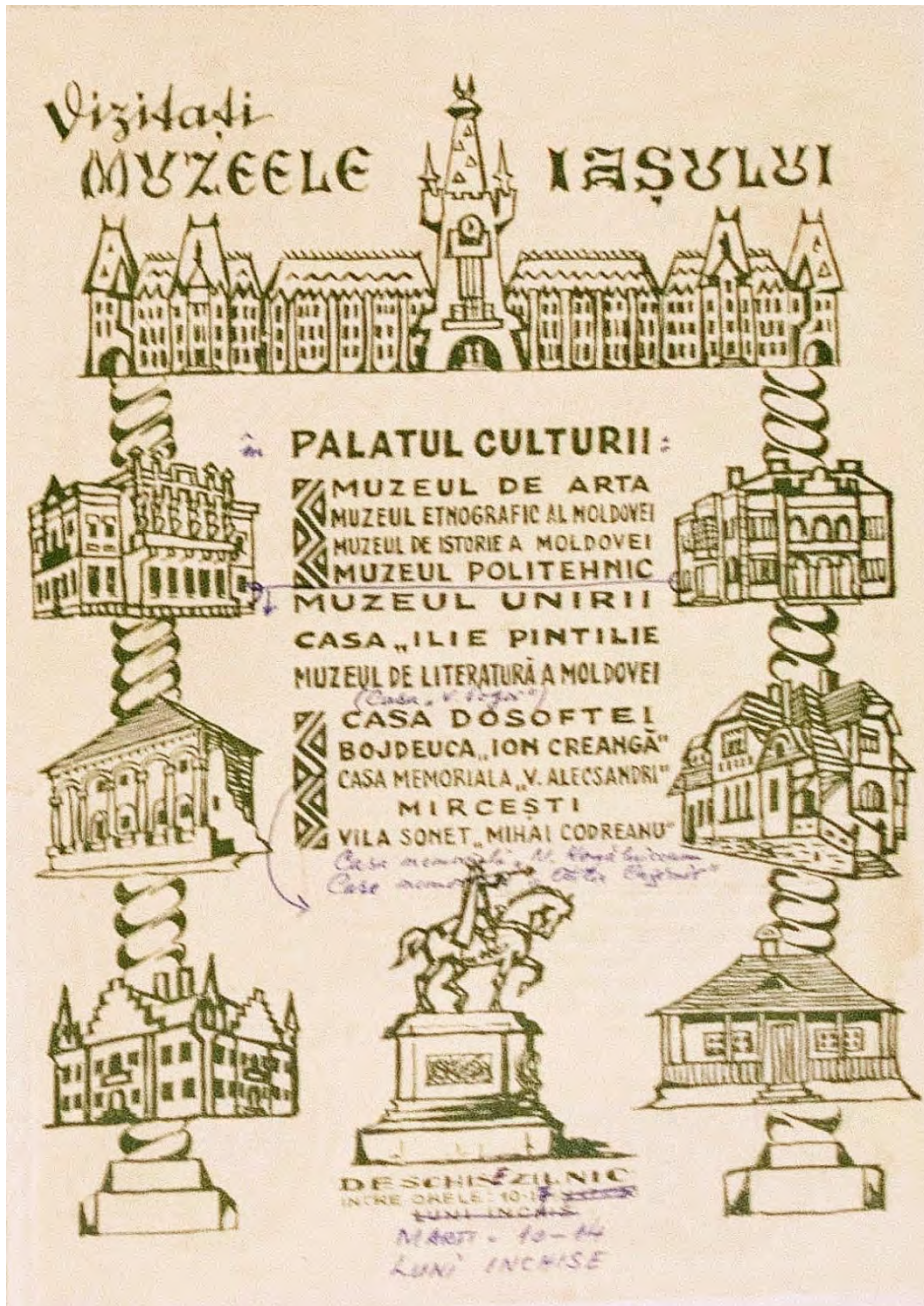 Vizitați
MUZEELE IAȘULUI
în PALATUL CULTURII:
MUZEUL DE ARTA
MUZEUL ETNOGRAFIC AL MOLDOVEI
MUZEUL DE ISTORIE A MOLDOVEI
MUZEUL POLITEHNIC
MUZEUL UNIRII
CASA „ILIE PINTILIE
MUZEUL DE LITERATURĂ A MOLDOVEI
(Casa „V. Pogor")
CASA DOSOFTEI
BOJDEUCA „ION CREANGĂ"
CASA MEMORIALA „V. ALECSANDRI"
MIRCEȘTI
VILA SONET „MIHAI CODREANU"
Casa memorială „N.
Casa
DESCHISE ZILNIC
INTRE ORELE: 10-17
LUNI INCHIS
MARTI - 10-14
LUNI INCHISE